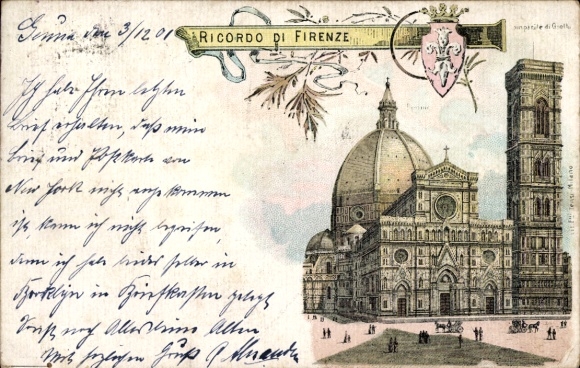 Genua den 3/12 01
RICORDO DI FIRENZE
Campanile di Giotto
Duomo
Ich habe Ihren letzten
Brief erhalten, daß mein
Brief und Postkarte von
New York nicht angekommen
ist kann ich nicht begreifen,
denn ich habe beides selber in
Brooklyn im Briefkasten gelegt
Sonst noch Alles beim Alten
Mit herzlichem Gruß
Milano